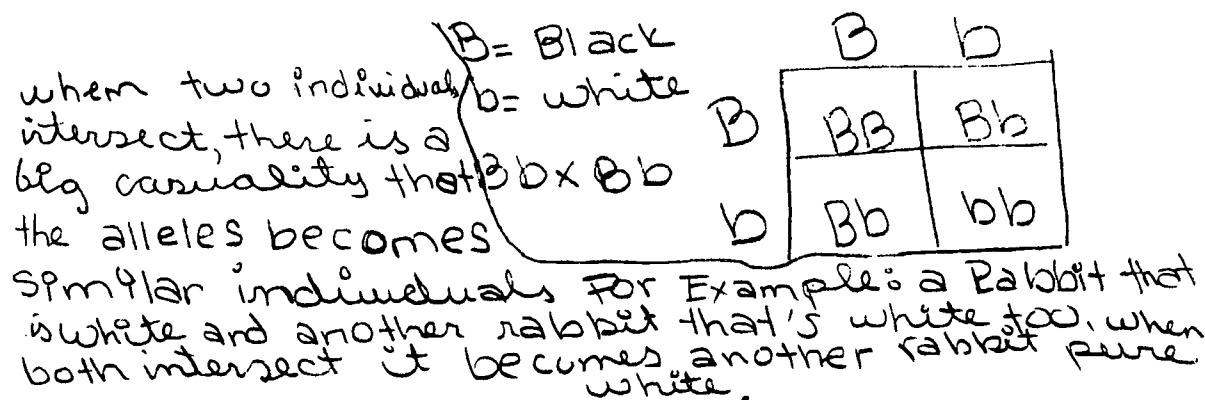 B= Black
b= white
Bb x Bb
B b
B BB Bb
b Bb bb
when two individuals
intersect, there is a
big casuality that
the alleles becomes
similar individuals For Example: a Rabbit that
is white and another rabbit that's white too. when
both intersect it becomes another rabbit pure
white.